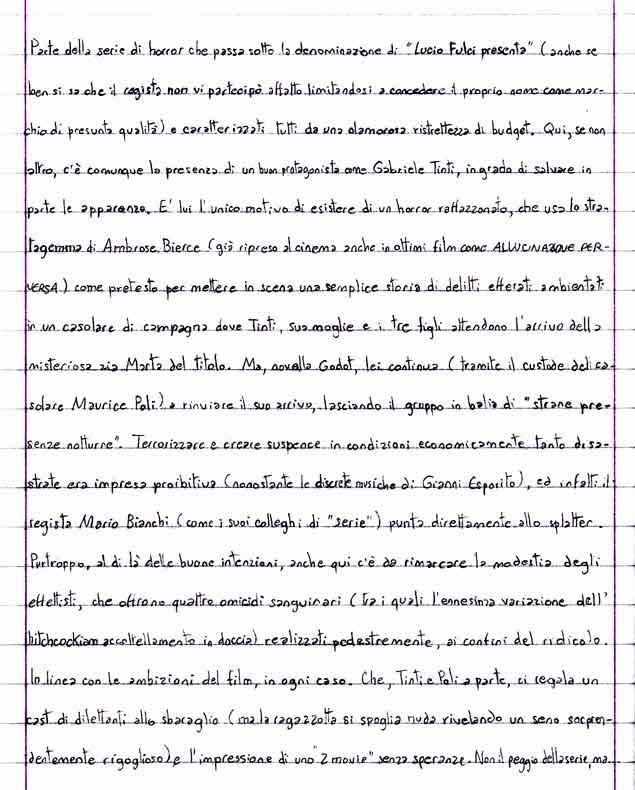 Parte della serie di horror che passa sotto la denominazione di "Lucio Fulci presenta" (anche se
ben si sa che il regista non vi partecipò affatto limitandosi a concedere il proprio nome come mar-
chio di presunta qualità) e caratterizzati tutti da una clamorosa ristrettezza di budget. Qui, se non
altro, c'è comunque la presenza di un buon protagonista come Gabriele Tinti, in grado di salvare in
parte le apparenze. E' lui l'unico motivo di esistere di un horror raffazzonato, che usa lo stra-
tagemma di Ambrose Bierce (già ripreso al cinema anche in ottimi film come ALLUCINAZIONE PER-
VERSA) come pretesto per mettere in scena una semplice storia di delitti efferati ambientati
in un casolare di campagna dove Tinti, sua moglie e i tre figli attendono l'arrivo della
misteriosa zia Marta del titolo. Ma, novella Godot, lei continua (tramite il custode del ca-
solare Maurice Poli) a rinviare il suo arrivo, lasciando il gruppo in balia di "strane pre-
senze notturne". Terrorizzare e creare suspence in condizioni economicamente tanto disa-
strate era impresa proibitiva (nonostante le discrete musiche di Gianni Esposito), ed infatti il
regista Mario Bianchi (come i suoi colleghi di "serie") punta direttamente allo splatter.
Purtroppo, al di là delle buone intenzioni, anche qui c'è da rimarcare la modestia degli
effettisti, che offrono quattro omicidi sanguinari (tra i quali l'ennesima variazione dell'
hitchcockiam accoltellamento in doccia) realizzati pedestremente, ai confini del ridicolo.
In linea con le ambizioni del film, in ogni caso. Che, Tinti e Poli a parte, ci regala un
cast di dilettanti allo sbaraglio (ma la ragazzotta si spoglia nuda rivelando un seno sorpren-
dentemente rigoglioso) e l'impressione di uno "Z movie" senza speranze. Non il peggio della serie, ma...